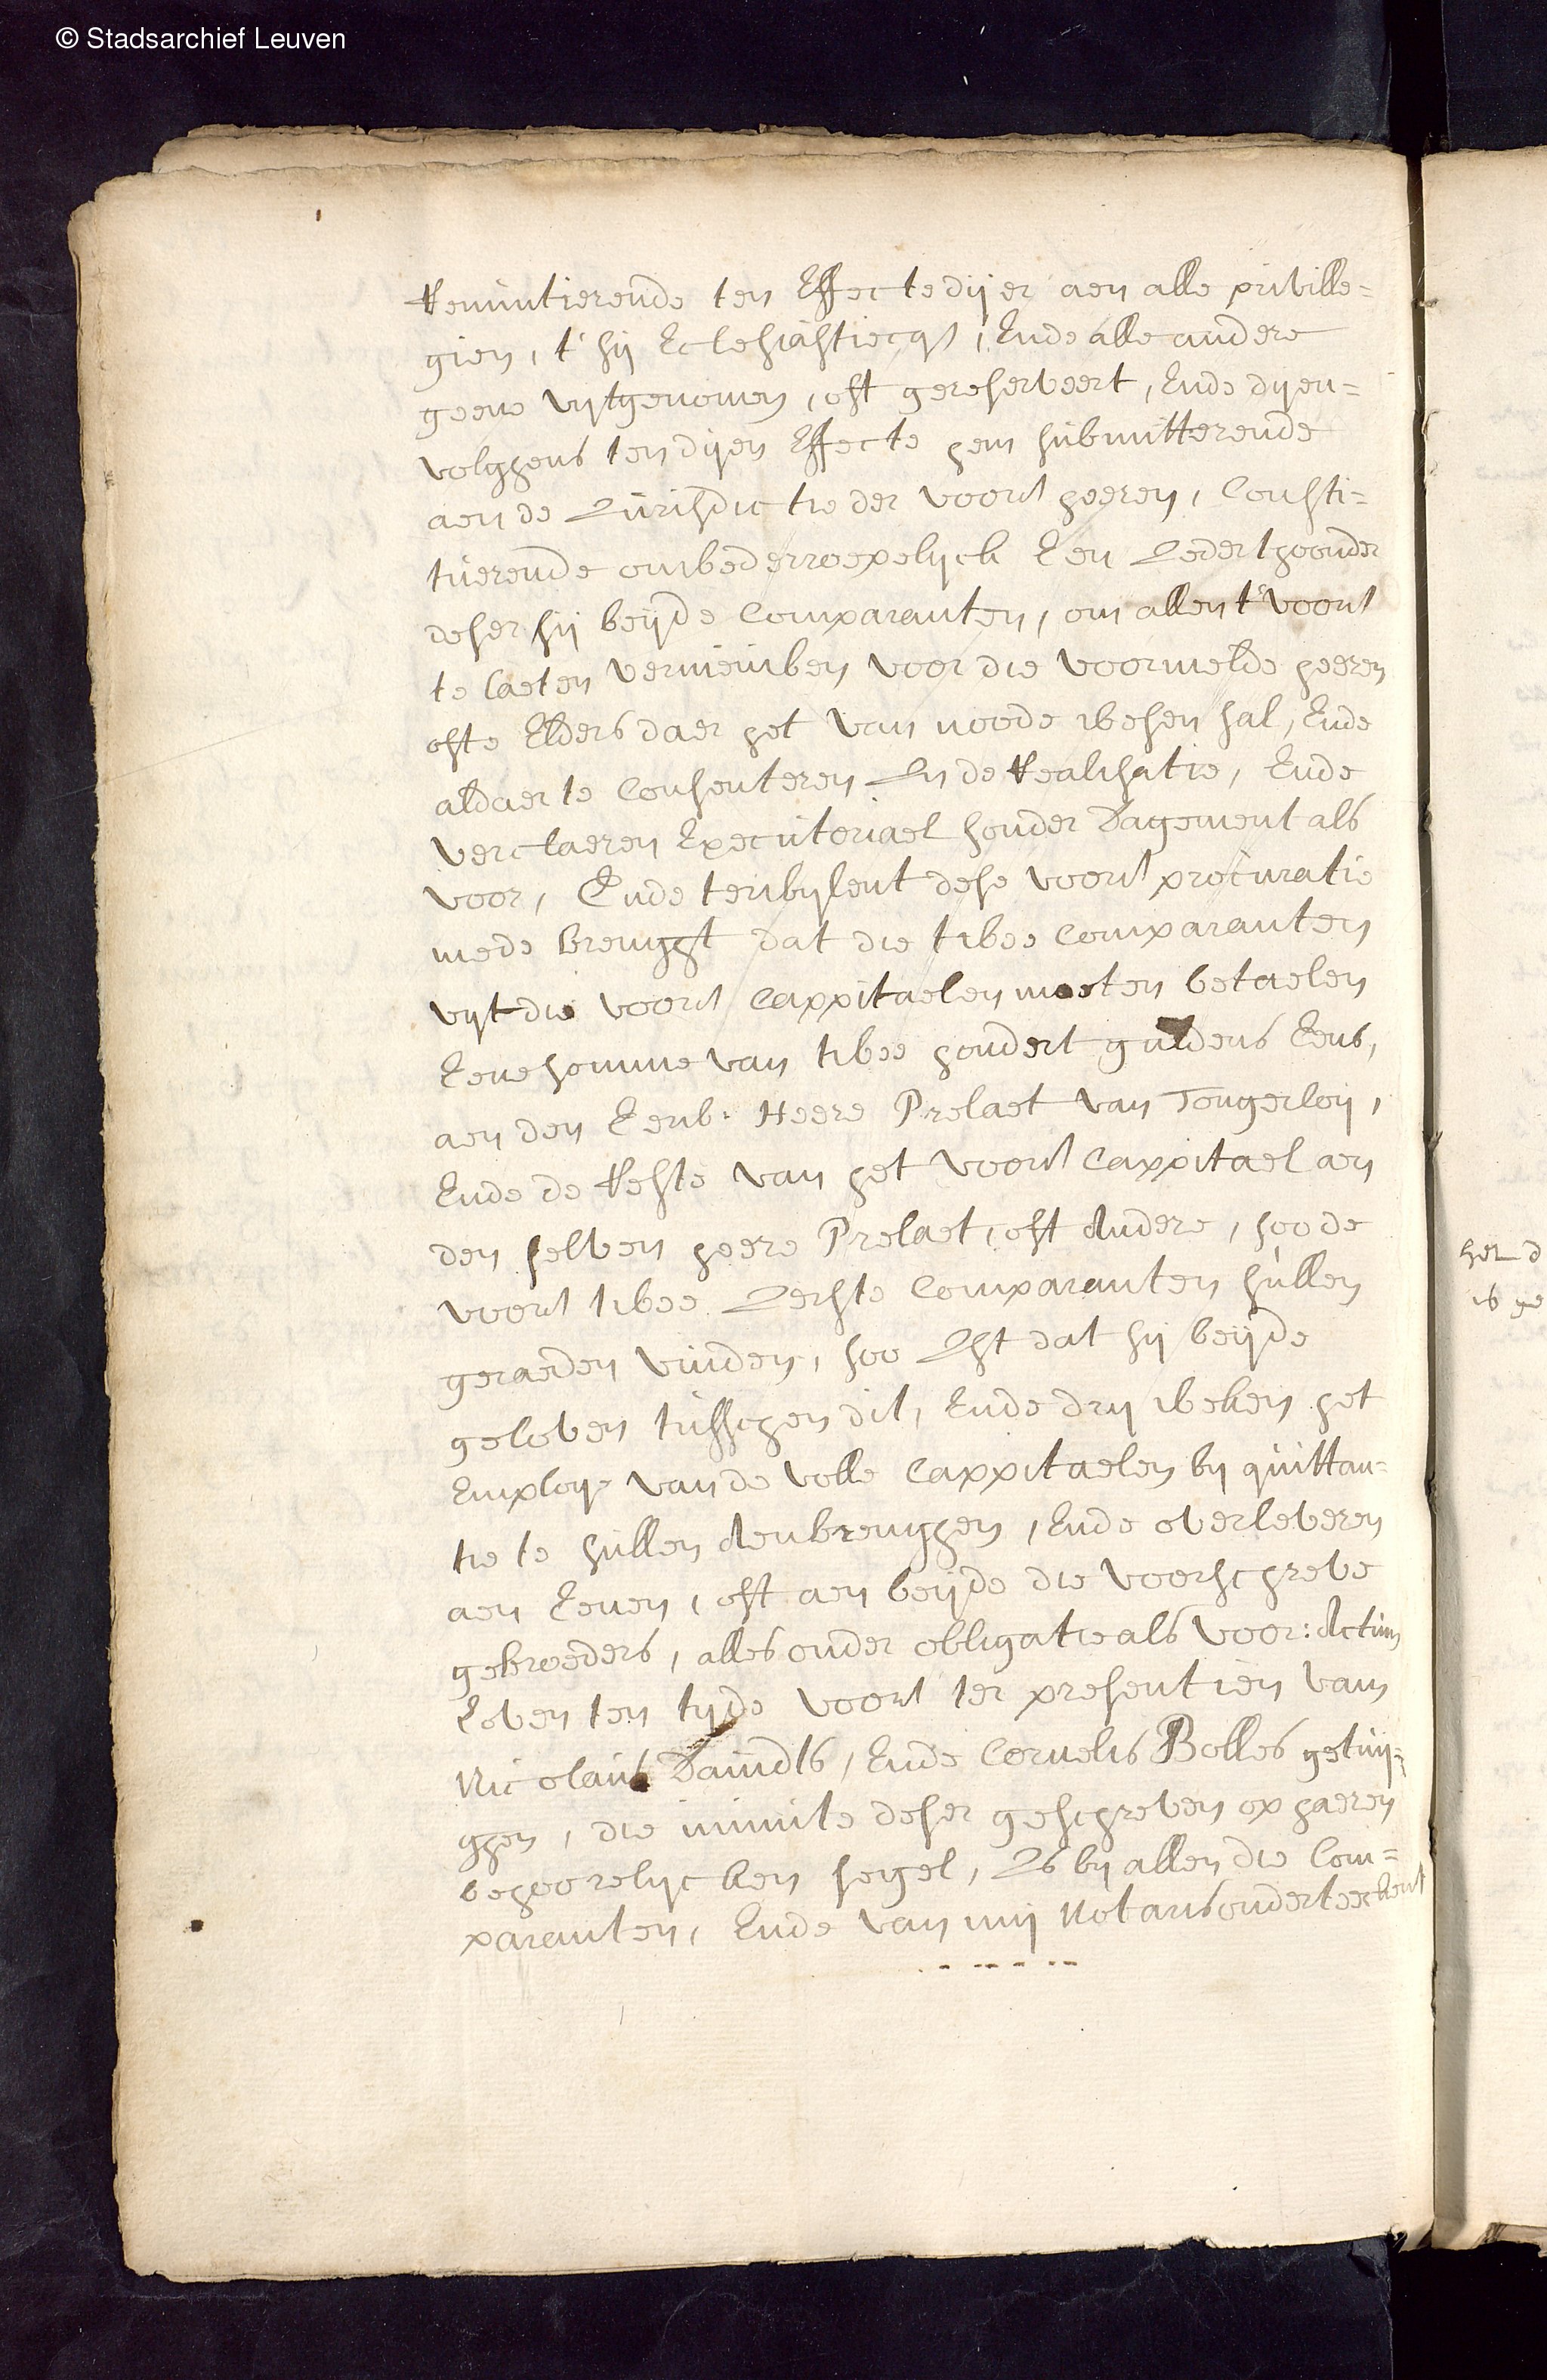 © Stadsarchief Leuven
Renuntierende ten Effecte dijer aen alle priville=
gien, t'sij Eclesiastiecqs, Ende alle andere
geene uijtgenomen, oft gereserveert, Ende dijen=
volghens ten dijen Effecte hem submitterende
aen de Jurisdictie der voors heeren, Consti=
tuerende onwederroepelijck Een Ieder thoonder
deser sij beijde Comparanten, om allen t'voors
te laeten vernieuwen voor die voormelde heeren
ofte Elders daer het van noode wesen sal, Ende
aldaer te Consenteren In de Realisatie, Ende
verclaeren Executoriael sonder Dagement als
voor, Ende terwylent dese voors procuratie
mede brenght dat die twee Comparanten
uijt die voors Cappitaelen moeten betaelen
Eene somme van twee hondert guldens Eens,
aen den Eerw. Heere Prelaet van Tongerloij,
Ende de Reste van het voors Cappitael aen
den selven heere Prelaet, oft Andere, soo de
voors twee Ierste Comparanten sullen
geraeden vinden, soo Ist dat sij beijde
geloven tusschen dit, Ende drij weken het
Employ van de volle Cappitaelen by quittan=
tie te sullen Aenbrenghen, Ende overleveren
aen Eenen, oft aen beijde die voorschreve
gebroeders, alles onder obligatie als voor: Actum
Loven ten tyde voors ter presentien van
Nicolaus Daindts, Ende Cornelis Bolles getuij=
ghen, die minute deser geschreven op haeren
behoorelijcken segel, Is by allen die Com=
paranten, Ende van mij Notaris onderteeckent
het d
is ge